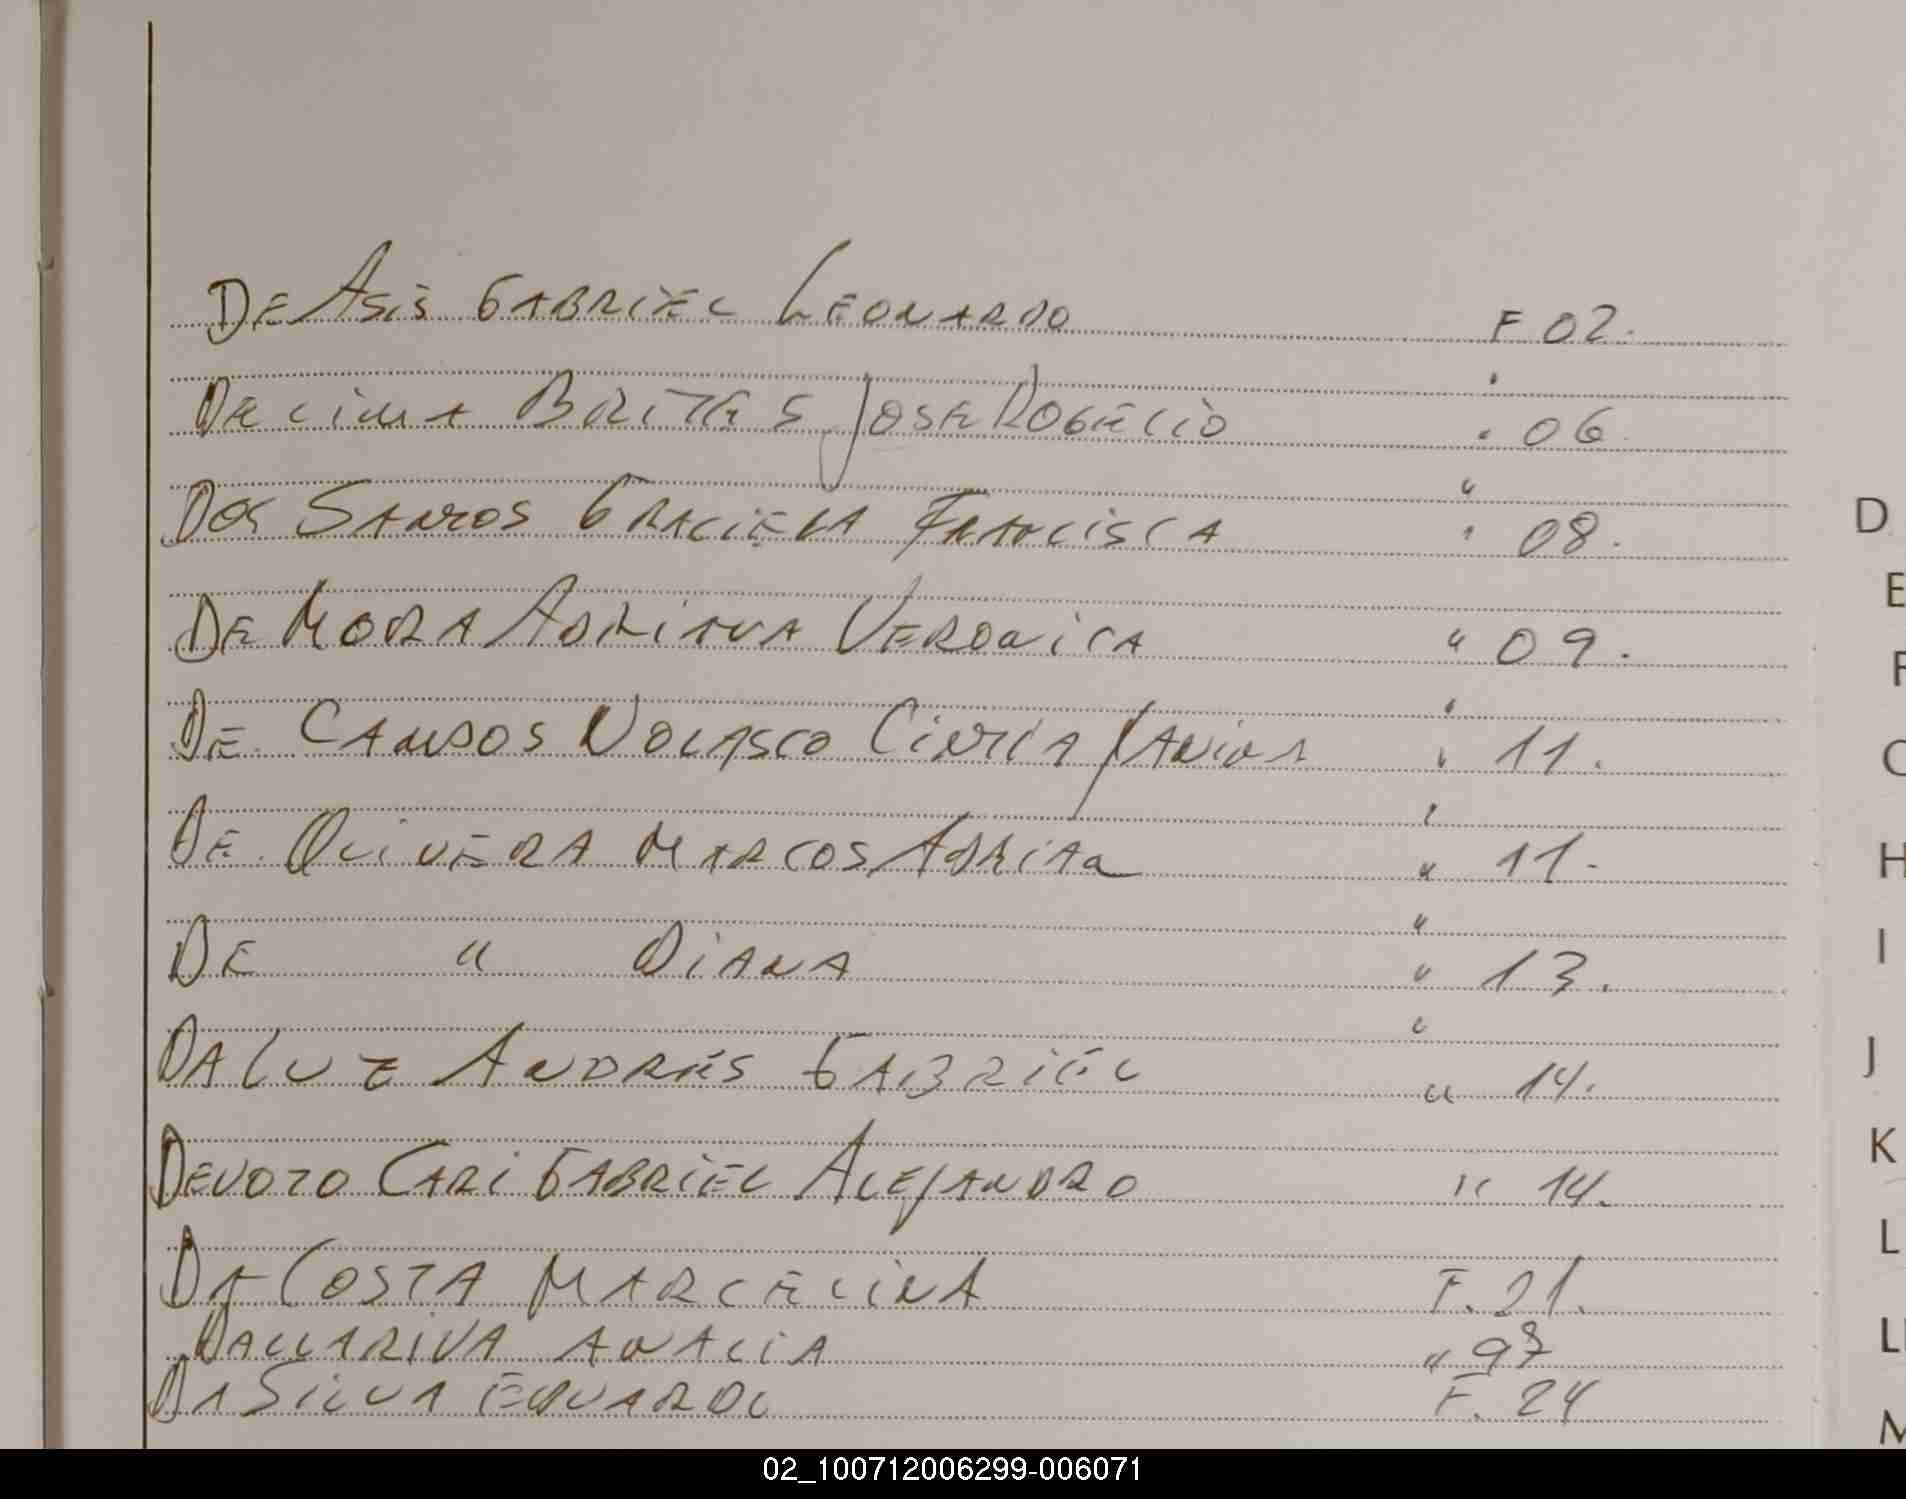 DE ASIS GABRIEL LEONARDO F 02.
DE LIMA BRITES JOSE ROGELIO " 06.
DOS SANTOS GRACIELA FRANCISCA " 08.
DE MORA ADRIANA VERONICA " 09.
DE CAMPOS NOLASCO CINTIA " 11.
DE OLIVERA MARCOS ADRIAN " 11.
DE " DIANA " 13.
DA LUZ ANDRÉS GABRIEL " 14.
DEVOTO CARI GABRIEL ALEJANDRO " 14.
DA COSTA MARCELINA F. 21.
DALLARIVA ANALIA "
DA SILVA EDUARDO F. 24
D
E
F
H
I
J
K
L
02_100712006299-006071